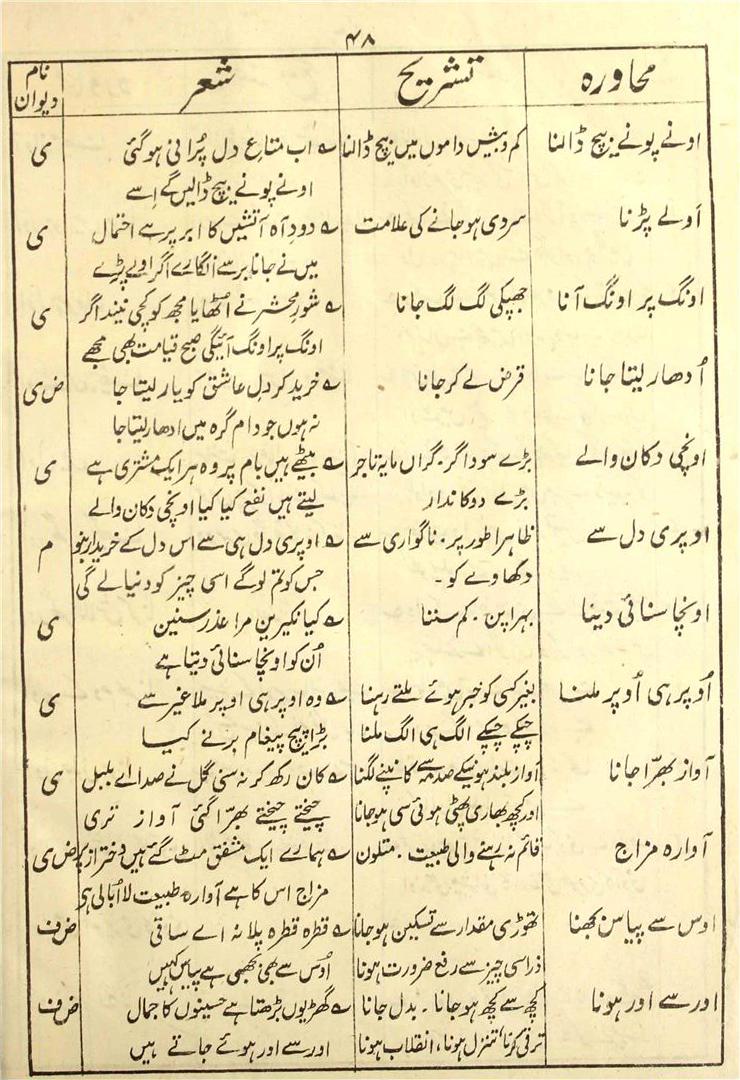 ۴۸
محاورہ تشریح شعر نام دیوان
اونے پونے بیچ ڈالنا کم و بیش داموں میں بیچ ڈالنا ؎ اب متاعِ دل پُرانی ہوگئی ی
اونے پونے بیچ ڈالیں گے اِسے
اَولے پڑنا سردی ہوجانے کی علامت ؎ دودِ آہ آتشیں کا ابر پر ہے احتمال ی
میں نے جانا برسے انگارے اگر اولے پڑے
اونگ پر اونگ آنا جھپکی لگ لگ جانا ؎ شورِ محشر نے اُٹھایا مجھ کو کچی نیند اگر ی
اونگ پر اونگ آئیگی صبح قیامت بھی مجھے
اُدھار لیتا جانا قرض لے کر جانا ؎ خرید کر دلِ عاشق کو یار لیتا جا ض ی
نہ ہوں جو دام گرہ میں ادھار لیتا جا
اونچی دکان والے بڑے سوداگر۔ گراں مایہ تاجر ؎ بیٹھے ہیں بام پر وہ ہر ایک مشتری ہے ی
بڑے دوکاندار لیتے ہیں نفع کیا کیا اونچی دکان والے
اوپری دل سے ظاہرا طور پر۔ ناگواری سے ؎ اوپری دل ہی سے اس دل کے خریدار بنو م
دکھاوے کو۔ جس کو تم لوگے اسی چیز کو دنیا لے گی
اونچا سنائی دینا بہراپن۔ کم سننا ؎ کیا نکیرین مرا عذر سنیں ی
اُن کو اونچا سنائی دیتا ہے
اُوپر ہی اُوپر ملنا بغیر کسی کو خبر ہوئے ملتے رہنا ؎ وہ اوپر ہی اوپر ملا غیر سے ی
چپکے چپکے الگ ہی الگ ملنا بڑا پیچ پیغام بر نے کیا
آواز بھرّا جانا آواز بلند ہونیکے صدمہ سے کانپنے لگنا ؎ کان رکھ کر نہ سنی گل نے صدا اے بلبل ی
اور کچھ بھاری پھٹی ہوئی سی ہوجانا چیختے چیختے بھرّا گئی آواز تری
آوارہ مزاج قائم نہ رہنے والی طبیعت۔ متلون ؎ ہمارے ایک مشفق مٹ گئے ہیں دختر رز پر ض ی
مزاج اس کا ہے آوارہ طبیعت لااُبالی ہی
اوس سے پیاس بجھنا تھوڑی مقدار سے تسکین ہوجانا ؎ قطرہ قطرہ پلا نہ اے ساقی ض ف
ذرا سی چیز سے رفع ضرورت ہونا اُوس سے بھی بجھی ہے پیاس کہیں
اور سے اور ہونا کچھ سے کچھ ہوجانا۔ بدل جانا ؎ گھڑیوں بڑھتا ہے حسینوں کا جمال ض ف
ترقی کرنا، تنزل ہونا، انقلاب ہونا اور سے اور ہوئے جاتے ہیں